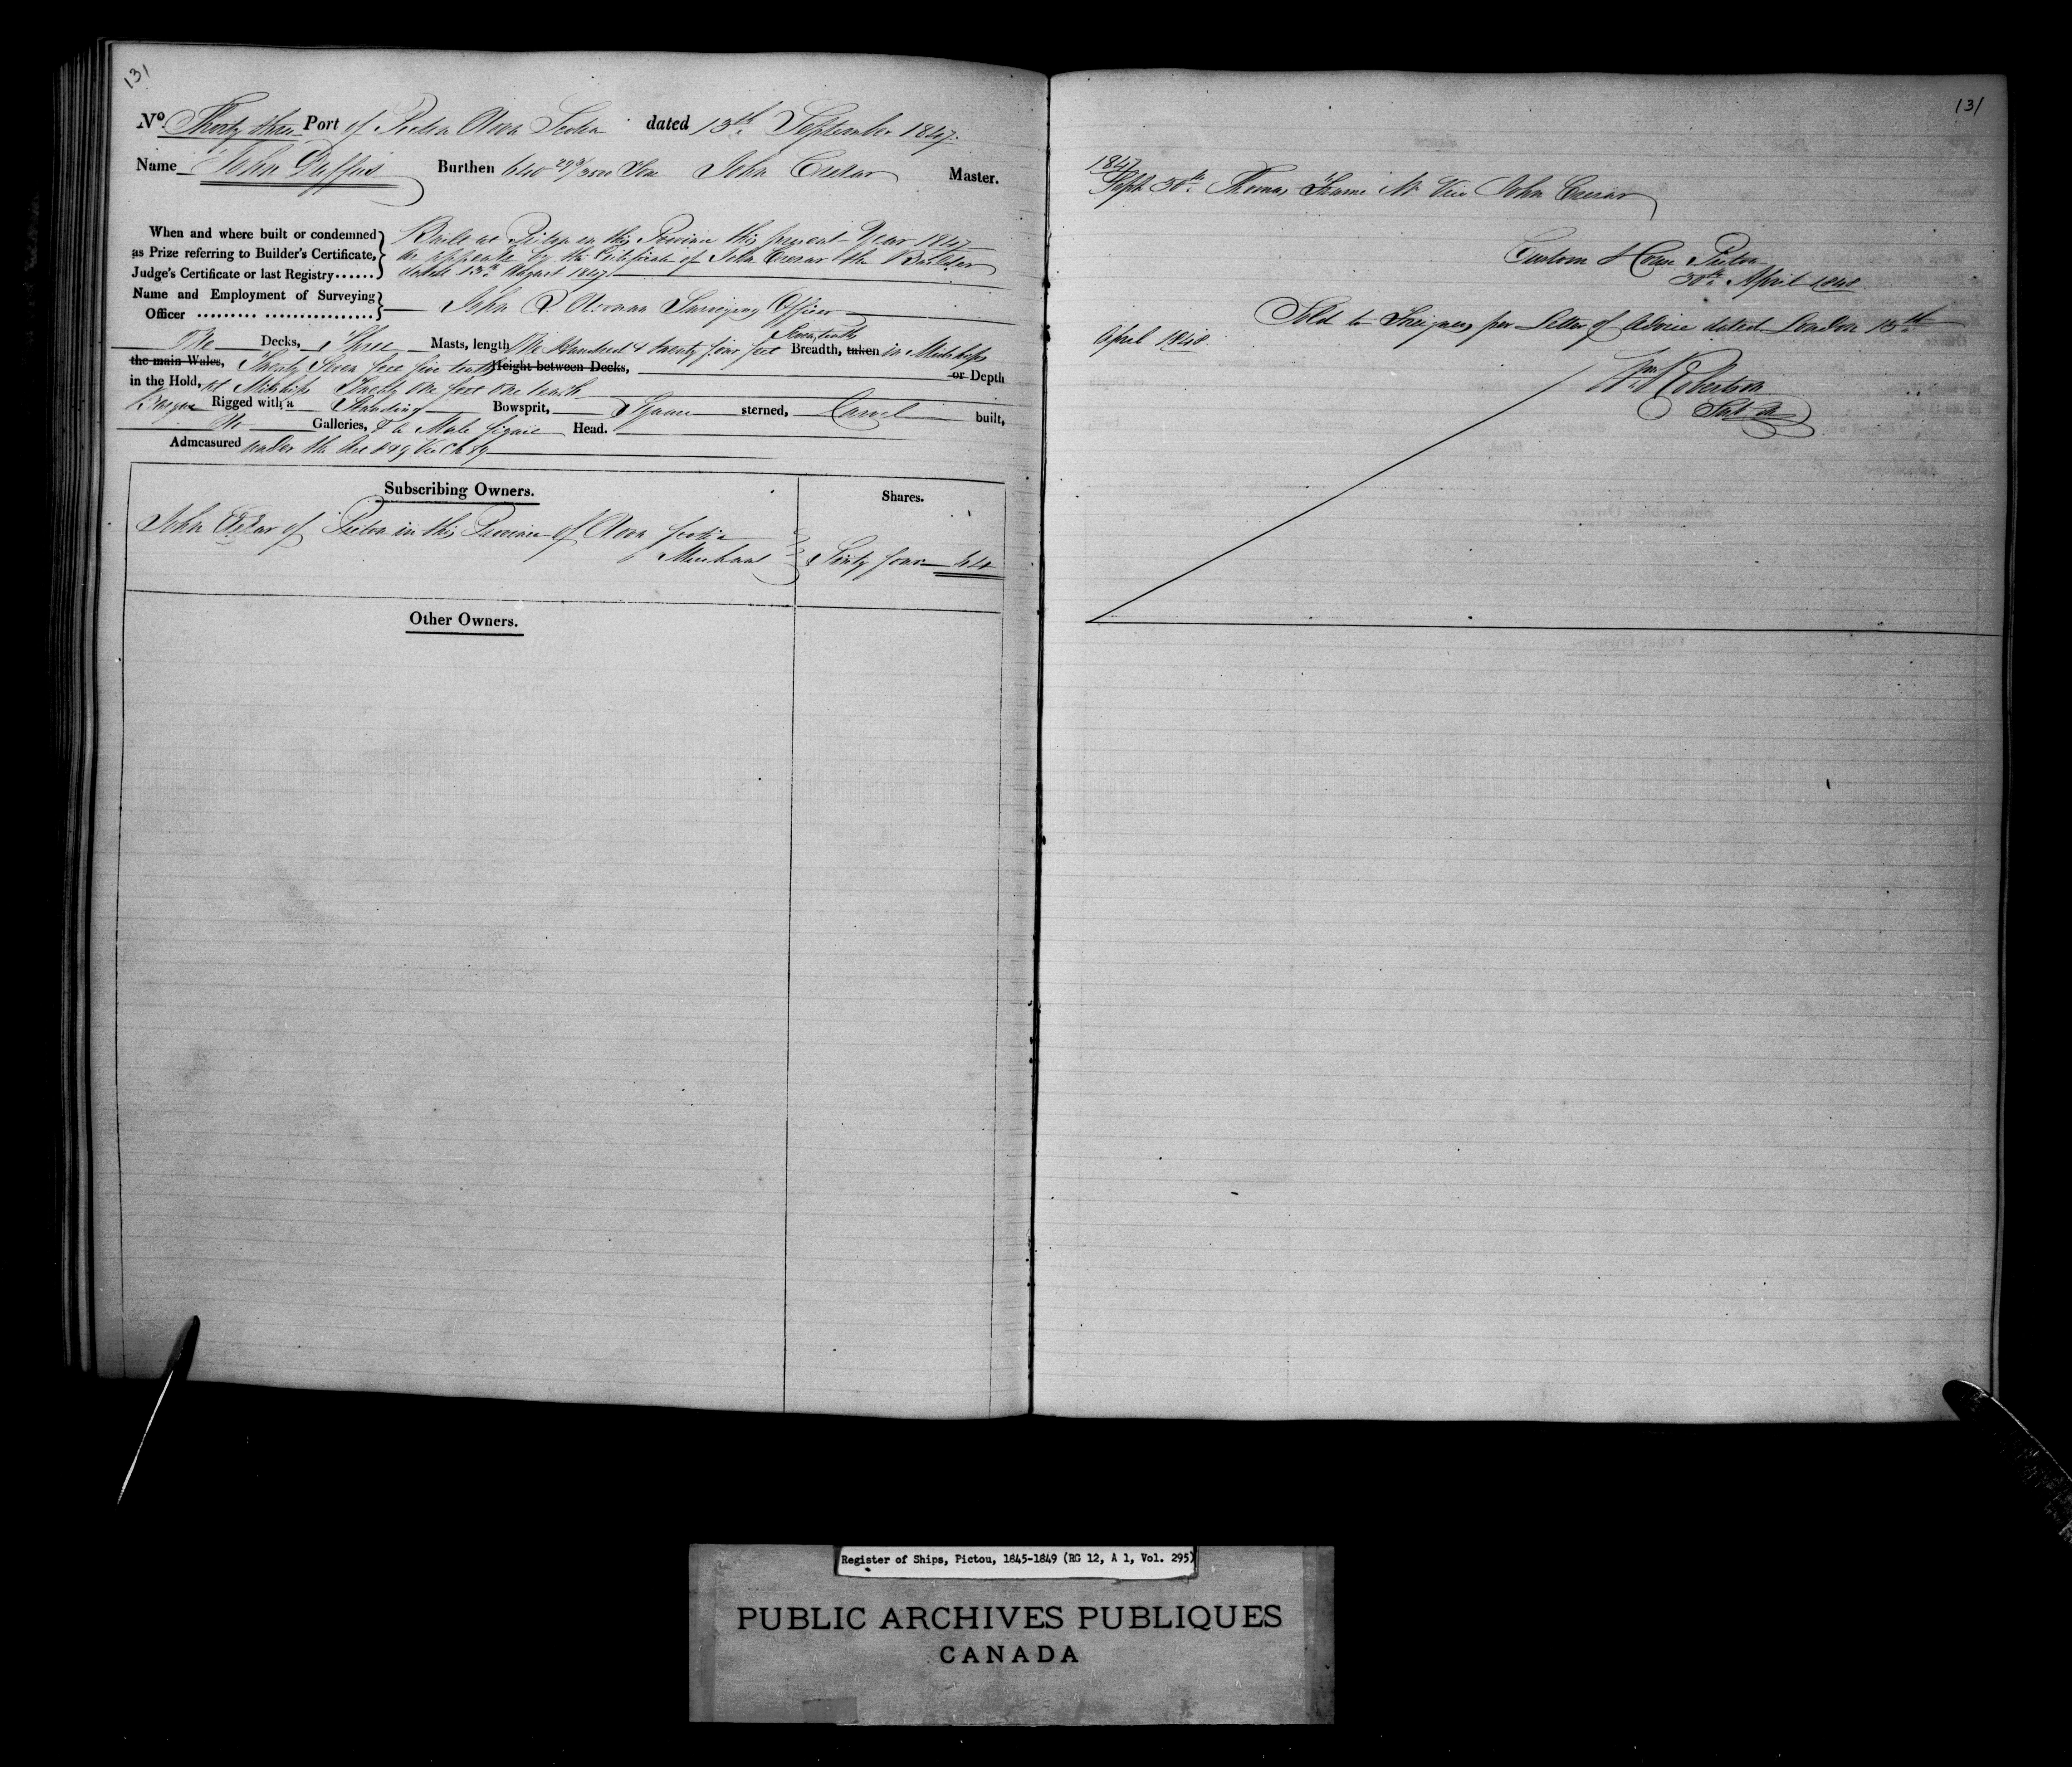 131
No. Thirty three Port of Pictou Nova Scotia dated 13th September 1847.
Name John Duffus Burthen 640 293/3500 Tons John Crerar Master.
When and where built or condemned as Prize referring to Builder's Certificate, Judge's Certificate or last Registry......
Built at Pictou in this Province this present Year 1847
as appears by the Certificate of John Crerar the Builder
dated 13th August 1847.
Name and Employment of Surveying Officer ......... ................
John Noonan Surveying Officer
Seven tenths
One Decks, Three Masts, length One Hundred & twenty four feet Breadth, taken in Midships
the main Wales, Twenty Seven feet five tenths Height between Decks, or Depth
in the Hold, at Midships Twenty One feet One tenth
Barque Rigged with a Standing Bowsprit, Square sterned, Carvel built,
No Galleries, & a Male figure Head.
Admeasured under the Act 8 & 9 Vic Ch 89
Subscribing Owners.
Shares.
John Crerar of Pictou in this Province of Nova Scotia
Merchant
Sixty four 64
Other Owners.
131
1847
Sept 30th Thomas Mr Vice John Crerar
Custom House Pictou
30th April 1848
Sold to Foreigners per Letter of Advice dated London 13th
April 1848
Wm Robertson
Register of Ships, Pictou, 1845-1849 (RG 12, A 1, Vol. 295)
PUBLIC ARCHIVES PUBLIQUES
CANADA